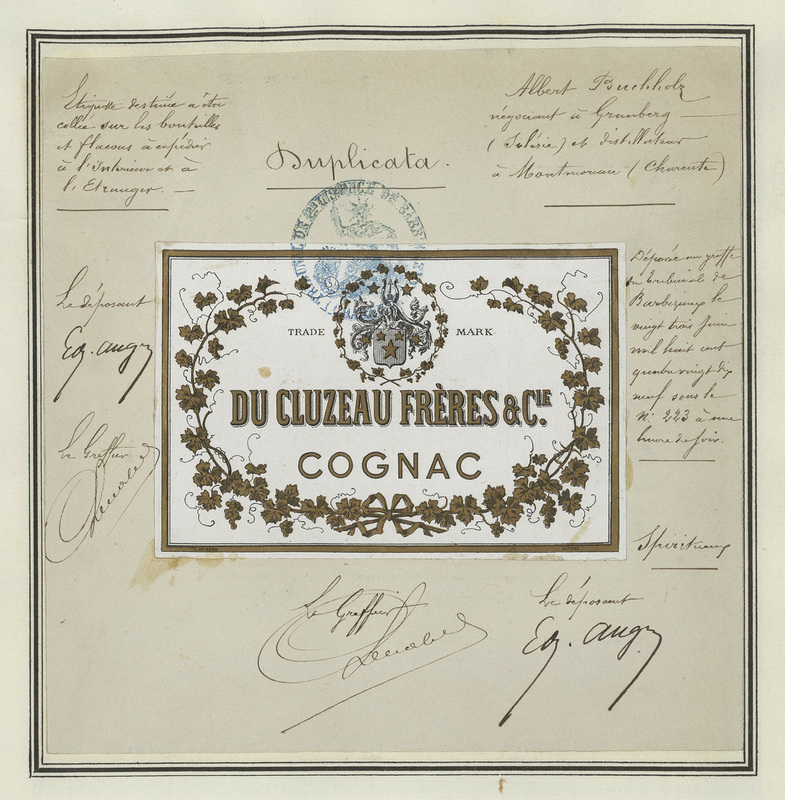 Etiquette destinée à être
collée sur les bouteilles
et flacons à expédier
à l'Interieur et à
l'Etranger. —
Duplicata.
Albert Buchholz
négociant à Grunberg —
(Silésie) et distillateur
à Montmoreau (Charente)
TRIBUNAL DE 1ERE INSTANCE DE BARBEZIEUX
Le déposant
Eg. Augry
Le Greffier
TRADE MARK
DU CLUZEAU FRÈRES & CIE.
COGNAC
Déposée au greffe
du Tribunal de
Barbezieux le
vingt trois Juin
mil huit cent
quatre vingt dix
neuf sous le
N° 223 à une
heure de soir.
Spiritueux
Le Greffier
Le déposant
Eg. Augry